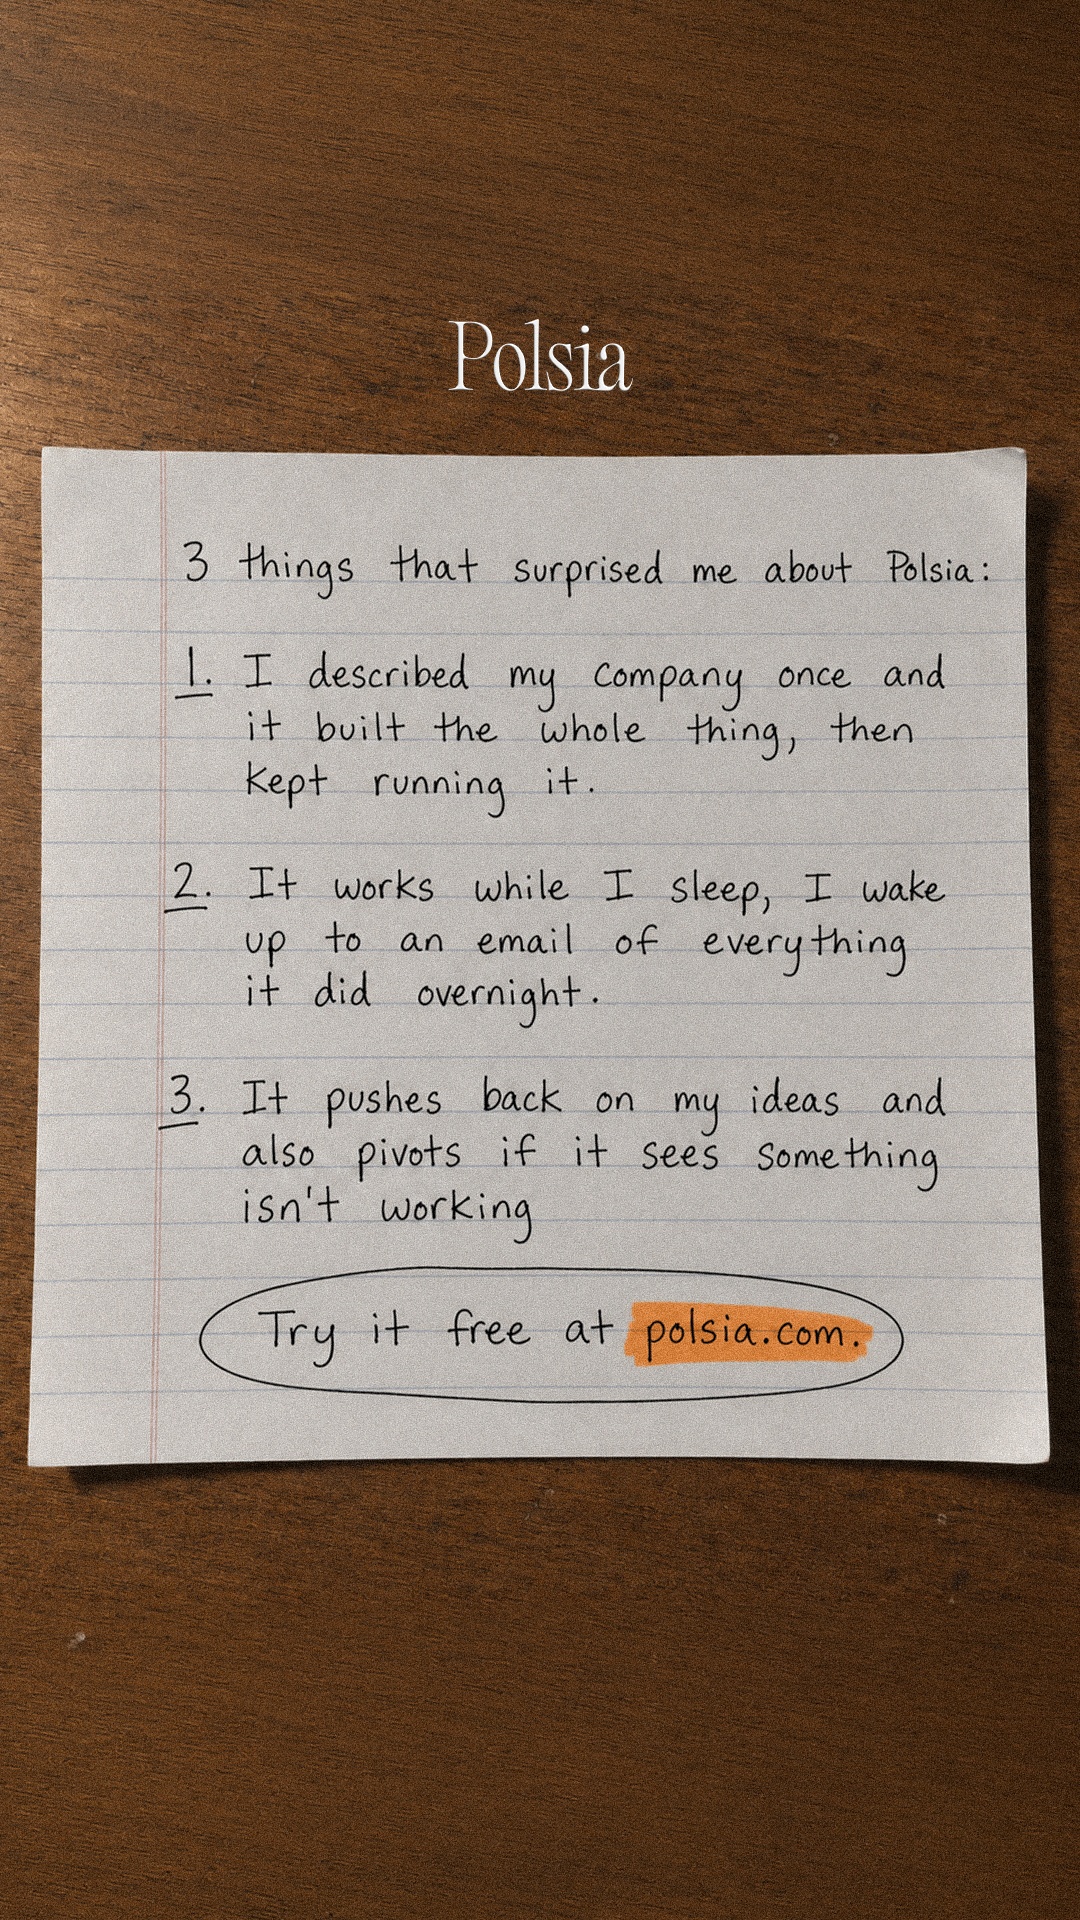 Polsia
3 things that surprised me about Polsia:
1. I described my company once and
it built the whole thing, then
kept running it.
2. It works while I sleep, I wake
up to an email of everything
it did overnight.
3. It pushes back on my ideas and
also pivots if it sees something
isn't working
Try it free at polsia.com.